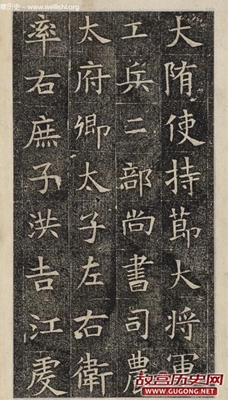 大隋使持節大将軍
工兵二部尚書司農
太府卿太子左右衛
率右庶子洪吉江虔
故宫历史网
WWW.GUGONG.NET